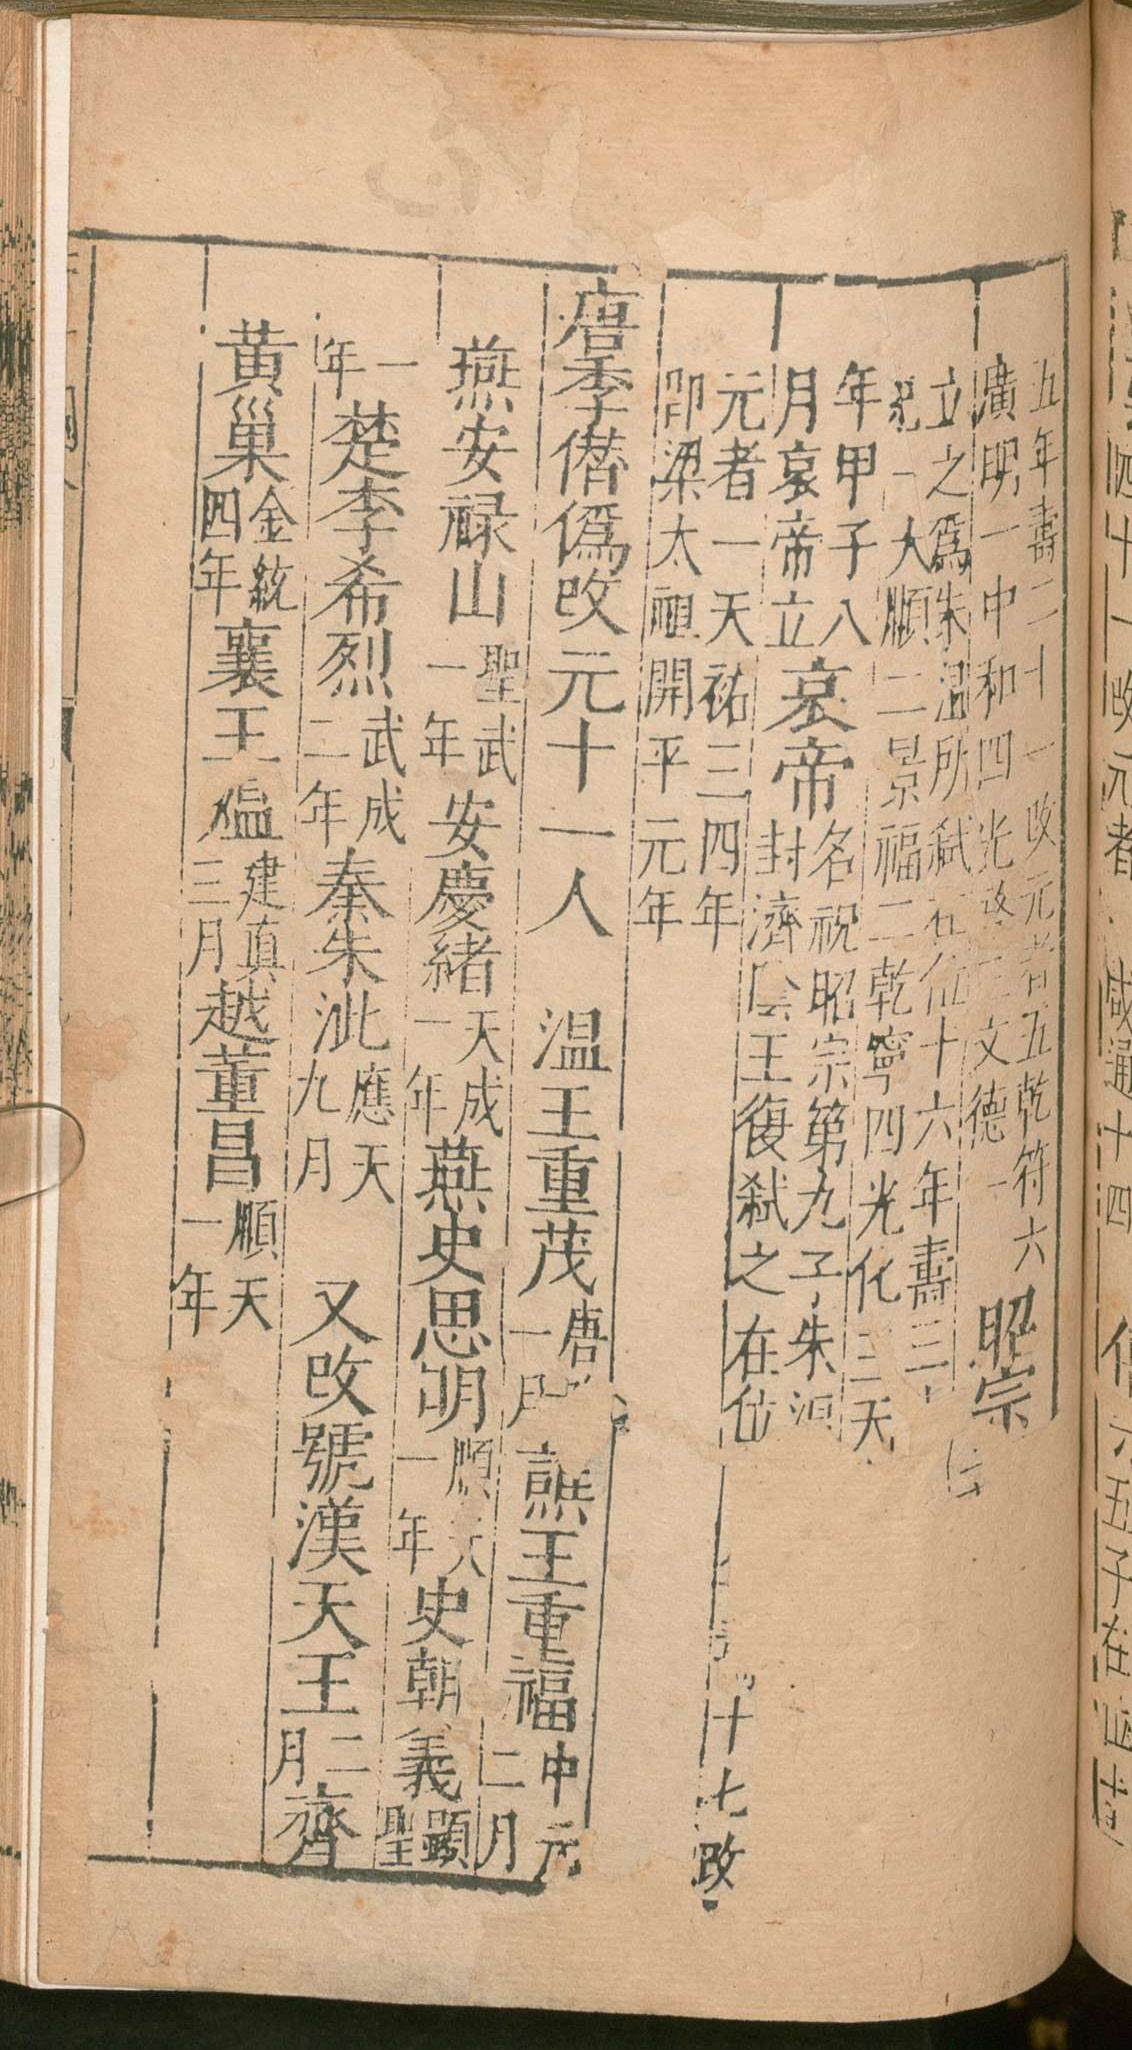 五年壽二十一改元者五乾符六
廣明一中和四光啓三文德一
昭宗
立之爲朱温所弑在位十六年壽三十
紀一大順二景福二乾寧四光化三天
年甲子八
月哀帝立
哀帝
名祝昭宗第九子朱温
封濟陰王復弑之在位
十七改
元者一天祐三四年
卽梁太祖開平元年
唐季僭僞改元十一人
温王重茂
唐
一月
譙王重福
中元
二月
燕安禄山
聖武
一年
安慶緒
天成
一年
燕史思明
順天
一年
史朝義
顯聖
一年
楚李希烈
武成
二年
秦朱泚
應天
九月
又改號漢天王
二月
齊
黄巢
金統
四年
襄王煴
建真
三月
越董昌
順天
一年